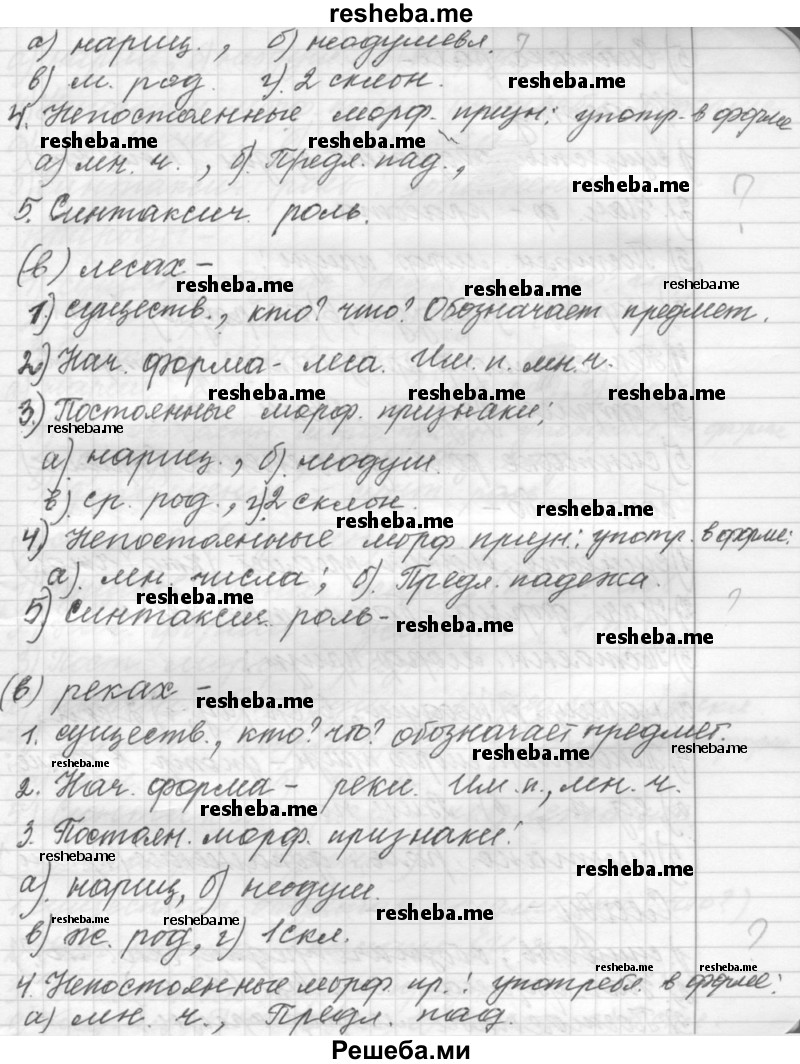 resheba.me
а) нариц., б) неодушевл. ?
в) м. род. г) 2 склон. resheba.me
4. Непостоянные морф. призн: употр. в форме
resheba.me resheba.me
а) мн. ч., б) Предл. пад.,
resheba.me ?
5. Синтаксич. роль.
(в) лесах -
resheba.me resheba.me resheba.me
1.) существ., кто? что? Обозначает предмет.
2.) Нач. форма - леса. Им. п. мн. ч.
resheba.me resheba.me resheba.me
3.) Постоянные морф. признаки;
resheba.me
а) нариц., б) неодуш.
в) ср. род., г) 2 склон. resheba.me
resheba.me
4) Непостоянные морф призн: употр. в форме:
resheba.me
а). мн. числа; б). Предл. падежа.
resheba.me ?
5) синтаксич. роль - resheba.me
resheba.me
(в) реках - resheba.me
1. существ., кто? что? обозначает предмет.
resheba.me resheba.me resheba.me
2. Нач. форма - реки. Им. п., мн. ч.
resheba.me
3. Постоян. морф. признаки:
resheba.me resheba.me
а). нариц, б) неодуш.
resheba.me resheba.me resheba.me
в) ж. род, г) 1 скл. ?
resheba.me resheba.me
4. Непостоянные морф. пр.: употребл. в форме:
а) мн. ч., Предл. пад.
Решеба.ми